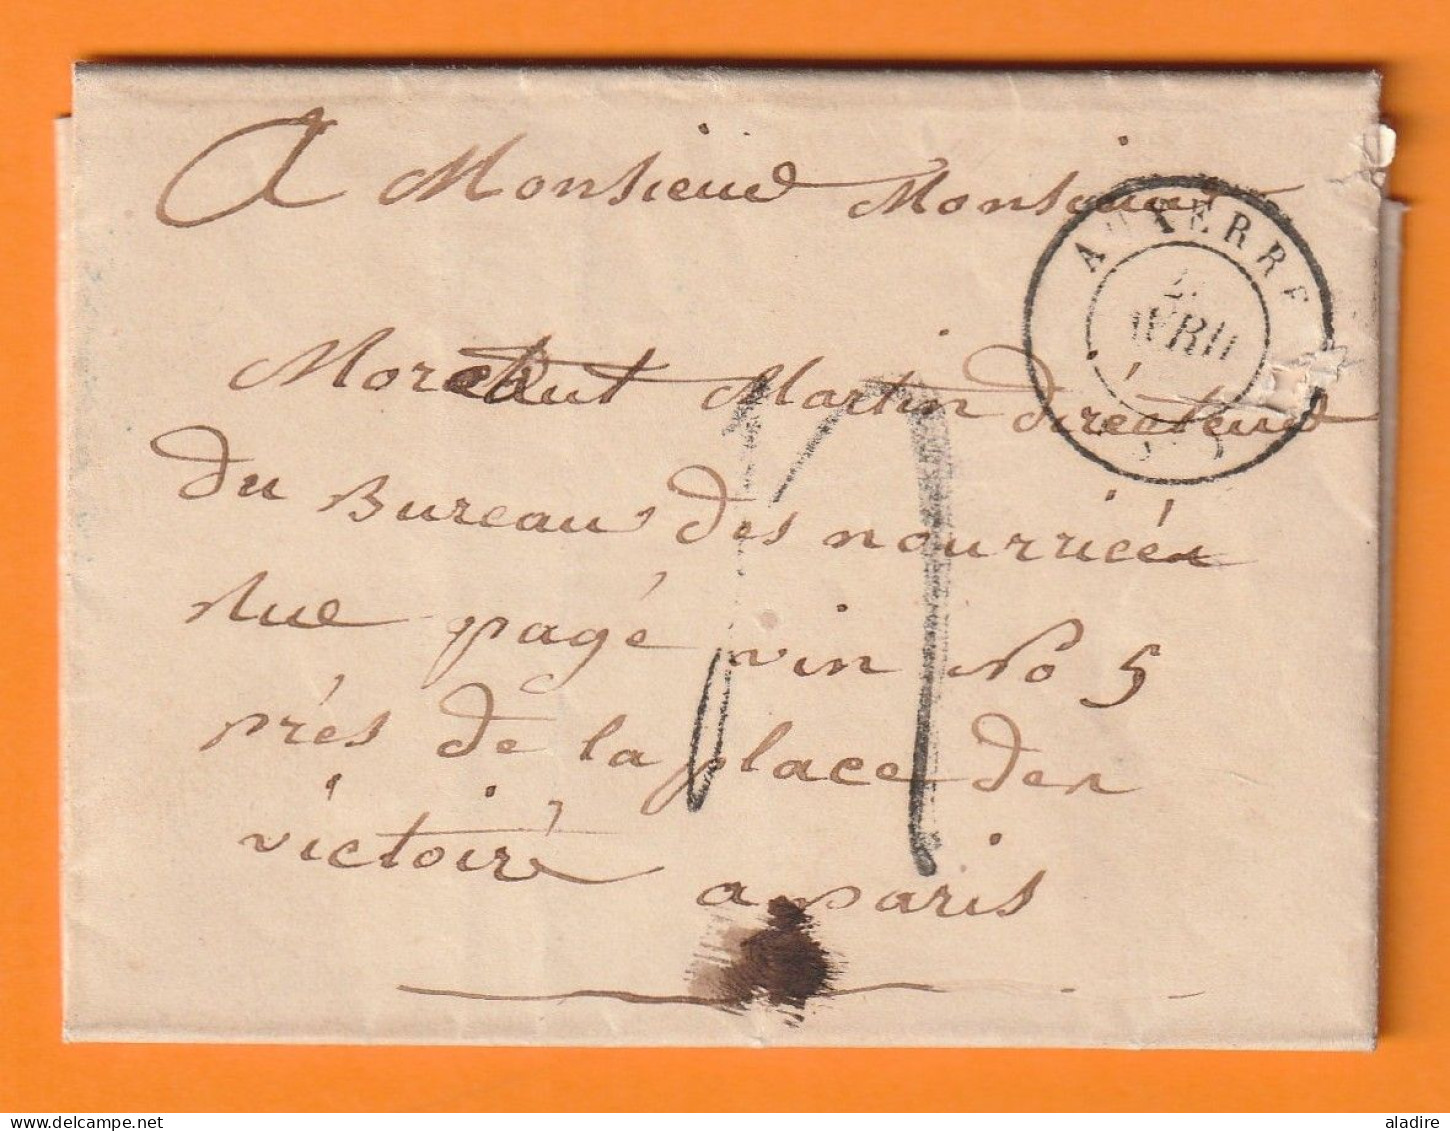 A Monsieur Monsieur
AUXERRE
AVRIL
Morechut Martin directeur
du Bureau des nourricés
Rue pagé vin No 5
prés de la place des
victoiré
a paris
© aladire
www.delcampe.net